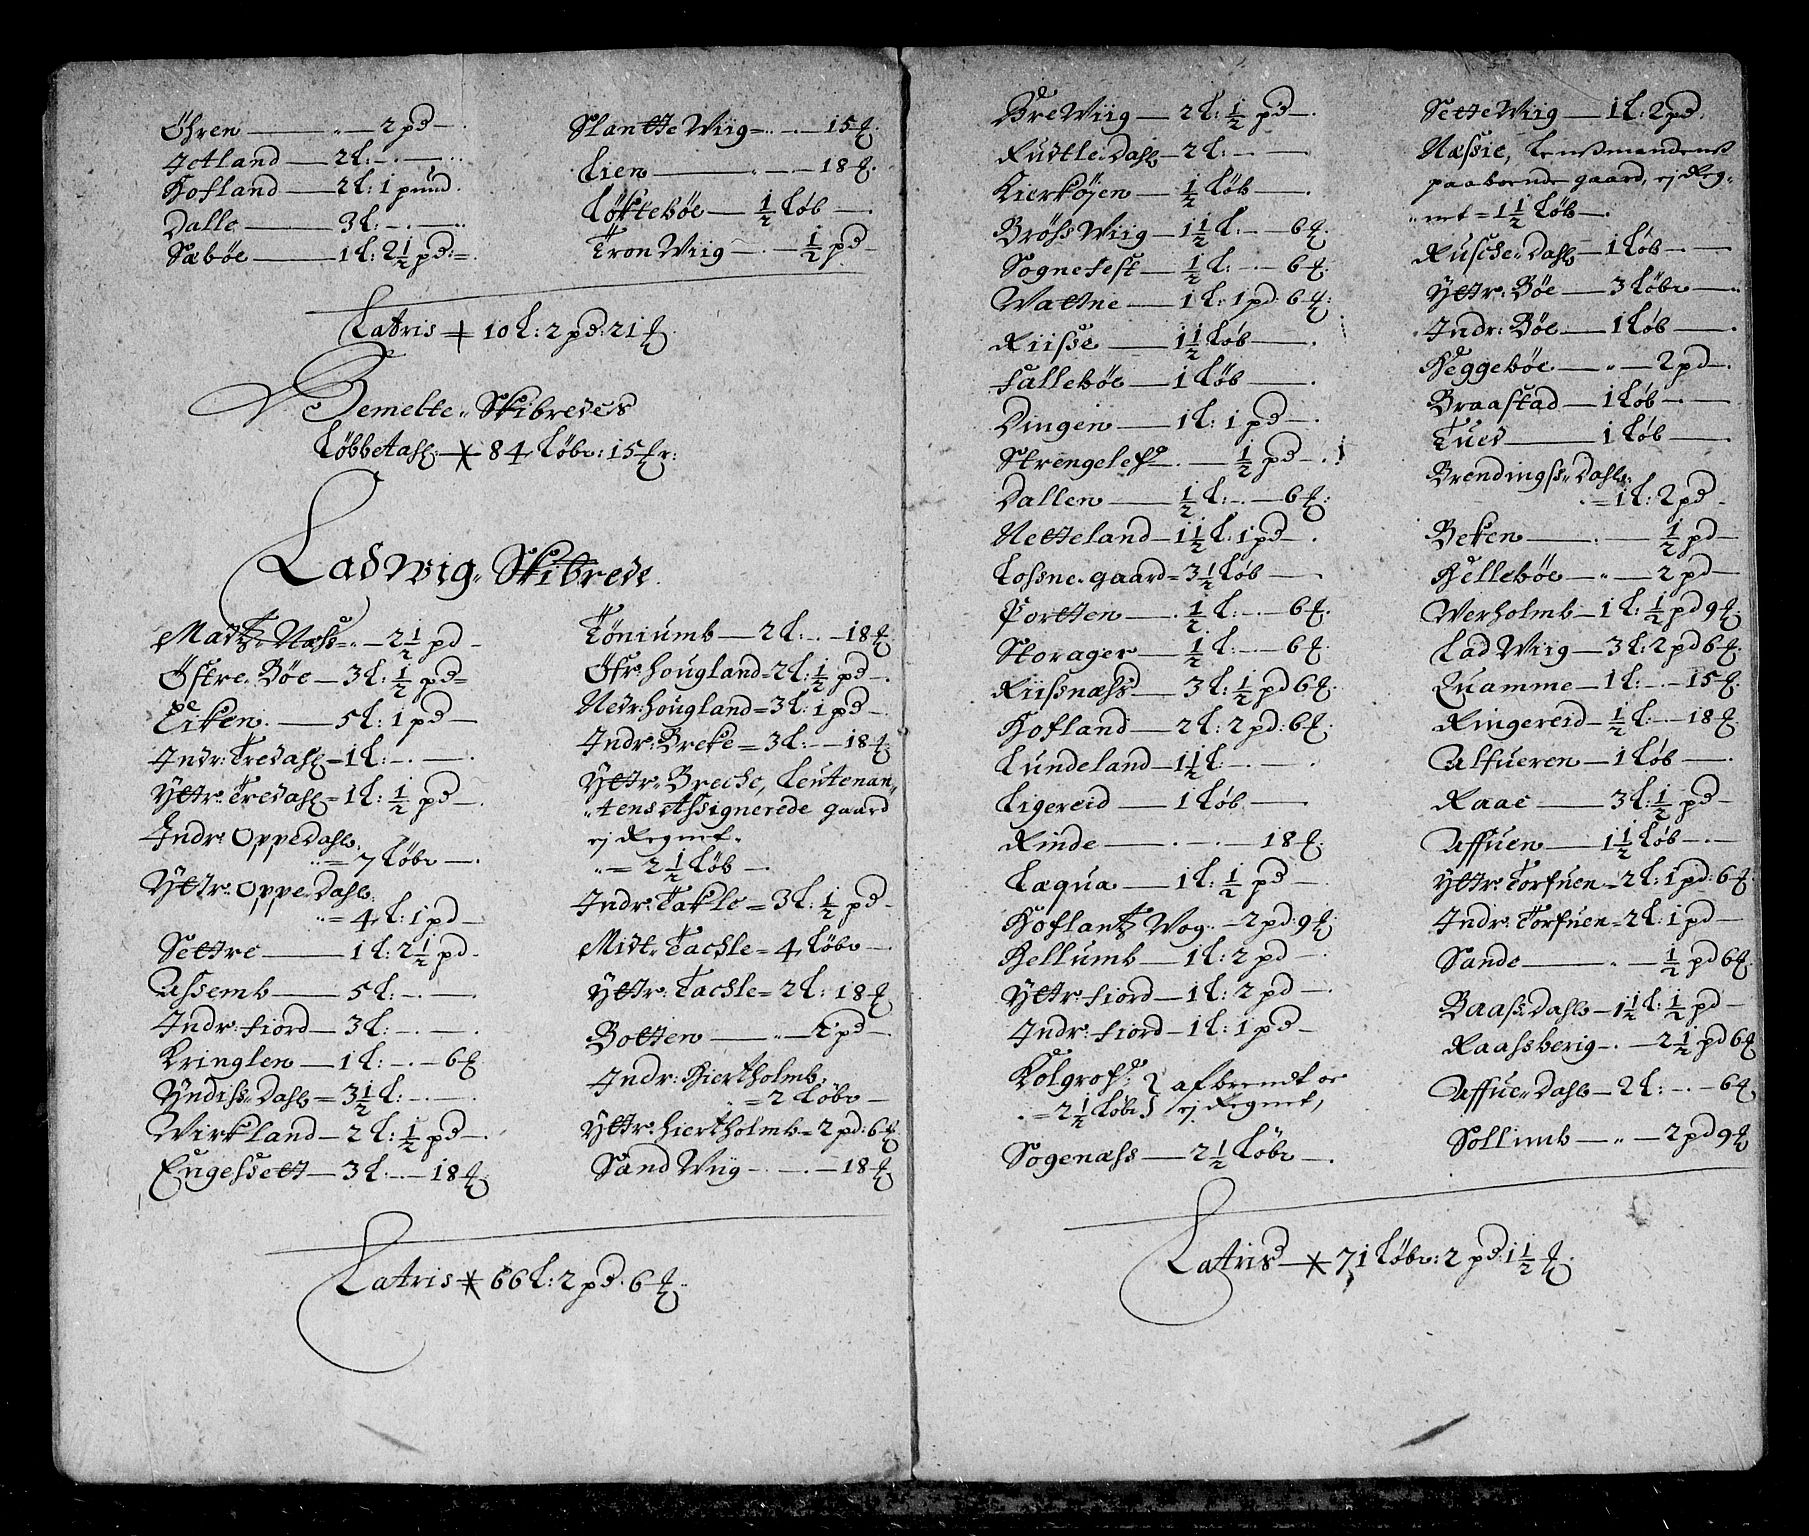 Öhren — „ — 2 pd —
Jetland — 2 L: — . —
Hofland — 2 L: 1 pund.
Dalle — 3 L: — . —
Sæbøe — 1 L: 2½ pd: =
Slantte Wiig — . — 15 ₰.
Lien — „ — 18 ₰.
Løktebøe — ½ Løb —.
Tron Wiig — . — ½ pd —
Latris + 10 L: 2 pd: 21 ₰.
Bemelte Skibredes
Løbbetahl: 84 Løbe: 15 ₰r:
Ladwig Skibrede.
Madtz Næss = „ — 2½ pd —
Östre Bøe — 3 L: ½ pd =
Eiken. — 5 L: 1 pd —
Indr: Tredahl = 1 L: — . —
Yttr: Tredahl = 1 L: ½ pd —.
Indr: Oppedahl.
„ = 7 Løbe —.
Yttr: Oppedahl
„ = 4 L: 1 pd —
Settre — 1 L: 2½ pd —
Assemb — 5 L: — . —
Indr: fiord — 3 L: — . —.
Kringlen — 1 L: — . — 6 ₰
Yndiss Dahl = 3½ L: — . —
Wirkland — 2 L: ½ pd —.
Engessett — 3 L: — . — 18 ₰
Töniumb — 2 L: — . — 18 ₰.
Öfr: hougland = 2 L: ½ pd —.
Nedr: hougland = 3 L: 1 pd —.
Indr: Breke = 3 L: — 18 ₰.
Yttr: Breche, Leutenan„
„tens Assignerede gaard
ej Regnet„
„ = 2½ Løb —.
Indr: Takle = 3 L: ½ pd —
Midt. Tachle = 4 Løbe —
Yttr: Tachle = 2 L: 18 ₰
Botten — „ — 2 pd —.
Indr: Hiertholmb.
„ = 2 Løbe —
Yttr: hiertholmb = 2 pd: 6 ₰.
Sand Wiig — . — 18 ₰
Latris * 66 L: 2 pd. 6 ₰.
Bre Wiig — 2 L: ½ pd —.
Rustle Dahl — 2 L: — . —
Kierkøjen — ½ Løb —.
Bröss Wiig — 1½ L: — 6 ₰.
Sognefest — ½ L: — . — 6 ₰.
Wattne — 1 L: 1 pd: 6 ₰:
Riisse — 1½ Løb —.
fallebøe — 1 Løb —.
Dingen — 1 L: 1 pd —.
Strengelef — . — ½ pd — .
Dallen — ½ L: — . — 6 ₰:
Netteland — 1½ L: 1 pd —.
Lossne gaard = 3½ Løb —.
Portten — . ½ L: — . — 6 ₰.
Storager — ½ L: — . — 6 ₰.
Riissnæss — 3 L: ½ pd 6 ₰.
Hofland — 2 L: 2 pd: 6 ₰.
Lundeland — 1½ L: — . —.
Ligereid — 1 Løb. —
Rinde — . — . — 18 ₰.
Læqua — 1 L: ½ pd —.
Hoflantz Wog. — 2 pd: 9 ₰.
Hellumb — 1 L: 2 pd — .
Yttr: fiord — 1 L: 2 pd —.
Indr: fiord — 1 L: 1 pd —
Kolgrof: } afbrendt oc
. = 2½ Løbe } ej Regnet,
Sogenæss — 2½ Løbe —.
Sette Wiig — 1 L: 2 pd.
Næssie, Lensmandens
paaboende gaard, ej Reg„
„net = 1½ Løb —.
Rusche Dahl — 1 Løb — . —
Yttr: Bøe — 3 Løbe —
Indr: Bøe — 1 Løb —.
Heggebøe — „ — 2 pd —.
Braastad — 1 Løb — . —
Tued — 1 Løb —.
Brendings Dahl
= 1 L: 2 pd —
Beken — . — ½ pd —
Hellebøe — „ — 2 pd —
Werholmb — 1 L: ½ pd 9 ₰.
Lad Wiig — 3 L: 2 pd 6 ₰.
Quamme — 1 L: — . — 15 ₰.
Ringereid — ½ L: — . 18 ₰.
Alfueren — 1 Løb —.
Raae — 3 L: ½ pd —
Affuen — 1½ Løb — . —
Yttr: Torfuen — 2 L: 1 pd: 6 ₰.
Indr: Torfuen = 2 L: 1 pd —
Sande — „ — ½ pd 6 ₰.
Baass Dahl — 1½ L: ½ pd —
Raassberig — . — 2½ pd 6 ₰
Affue Dahl — 2 L: — . — 6 ₰
Sollimb — „ — 2 pd 9 ₰
Latris — * 71 Løbe: 2 pd: 1½ ₰.